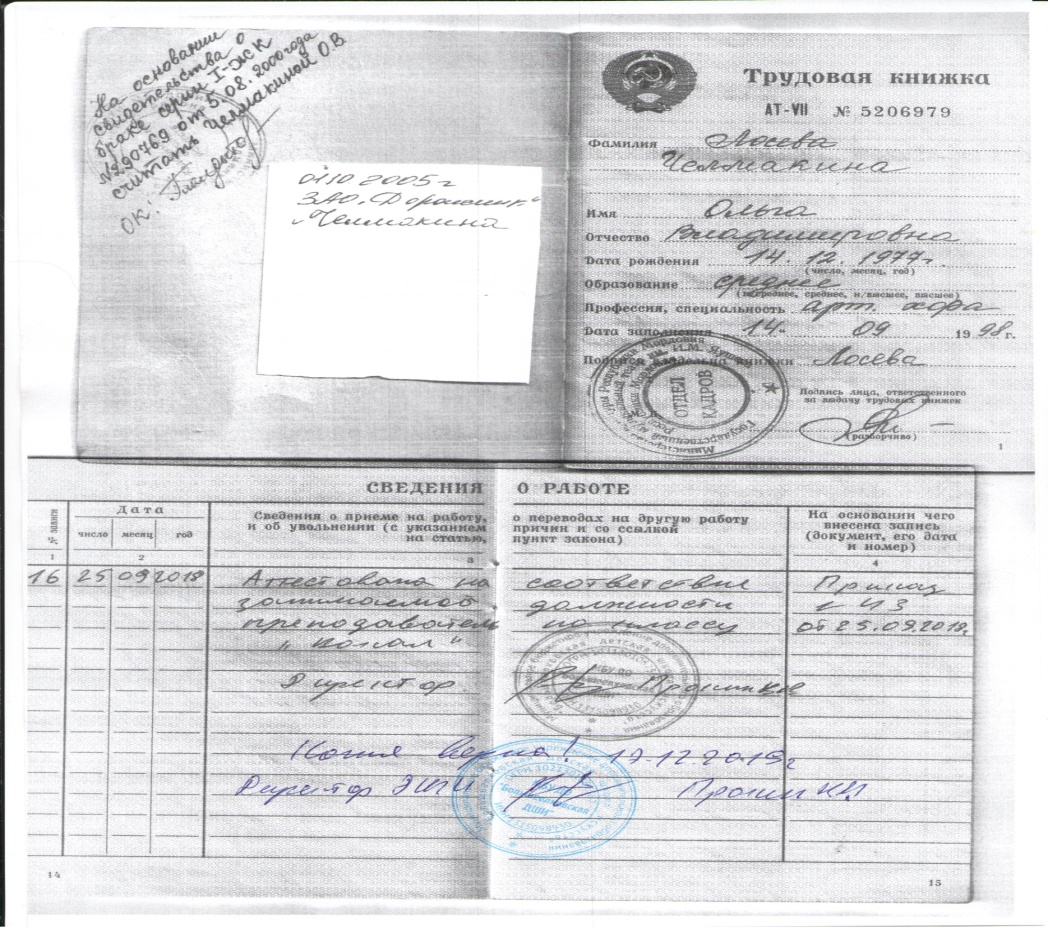 На основании
свидетельства о
браке серии I-ЖК
№290769 от 5.08.2000года
считать Челмакиной О.В
ОК:
01.10 2005 г
ЗАО „Дорожник“
Челмакина
Трудовая книжка
AT-VII № 5206979
Фамилия Лосева
Челмакина
Имя Ольга
Отчество Владимировна
Дата рождения 14. 12. 1977г.
(число, месяц, год)
Образование среднее
среднее, н/высшее, высшее)
Профессия, специальность арт. хора
Дата заполнения 14. 09 1998 г.
Подпись владельца книжки Лосева
ОТДЕЛ
КАДРОВ
Подпись лица, ответственного
за выдачу трудовых книжек
(разборчиво)
1
СВЕДЕНИЯ О РАБОТЕ
№ записи
Дата
число месяц год
Сведения о приеме на работу, о переводах на другую работу
и об увольнении (с указанием причин и со ссылкой
на статью, пункт закона)
На основании чего
внесена запись
(документ, его дата
и номер)
1 2 3 4
16 25 09 2018 Аттестована на соответствие Приказ
занимаемой должности № 43
преподаватель по классу от 25.09.2018г.
„вокал“
Директор Прошин
Копия верна! 17.12.2019г
Директор Прошин
ДШИ"
14 15